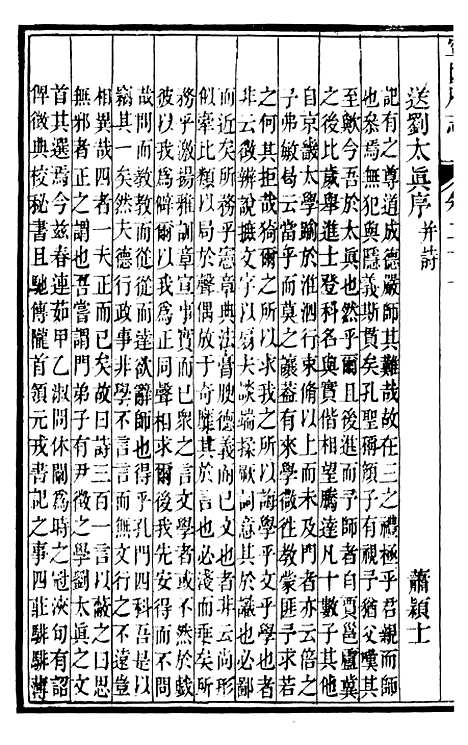 送劉太眞序 并詩
蕭穎士
記有之尊道成德嚴師其難哉故在三之禮極乎君親而師
也叅焉無犯與隱義斯貫矣孔聖稱顏子有視予猶父嘆其
至歟今吾於太眞也然乎爾且後進而予師者自賈邕盧冀
之後比歲舉進士登科名與實偕相望騰達凡十數子其他
自京畿太學踰於淮泗行束脩以上而未及門者亦云倍之
予弗敏局當乎而莫之讓蓋有來學微往教蒙匪予求
之何其拒哉猗爾之所以求我之所以誨學乎文乎學也者
非云徵辨說摭文字以扇夫談端輮厥詞意其於識也必鄙
而近矣所務乎憲章典法膏腴德義而已文也者非云尚形
似牽比類以局夫儷偶放於奇靡其於言也必淺而乖矣所
務乎激揚雅訓章宣事實而已衆之言文學者或不然於戲
彼以我爲僻爾以我爲正同聲相求爾後我先安得而不問
哉問而教教而從從而達欲辭師也得乎孔門四科吾是以
竊其一矣然夫德行政事非學不言言而無文行之不遠豈
相異哉四者一夫正而已矣故曰詩三百一言以蔽之曰思
無邪者正之謂也吾嘗謂門弟子有尹徵之學劉太眞之文
首其選焉今兹春連茹甲乙淑問休闡爲時之冠浹旬有詔
俾徵典校秘書且馳傳隴首領元戎書記之事四牡騑騑薄